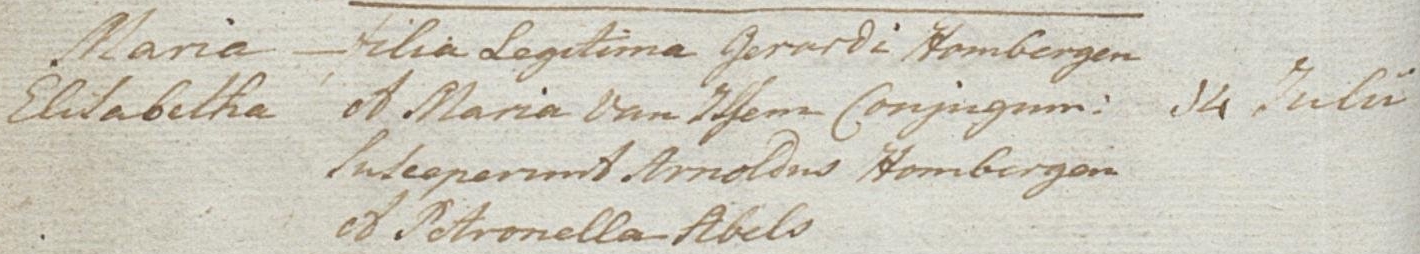 Maria — filia Legitima Gerardi Hombergen
Elisabetha et Maria Van Issem Conjugum: 14 Julii
Susceperunt Arnoldus Hombergen
et Petronella Abels